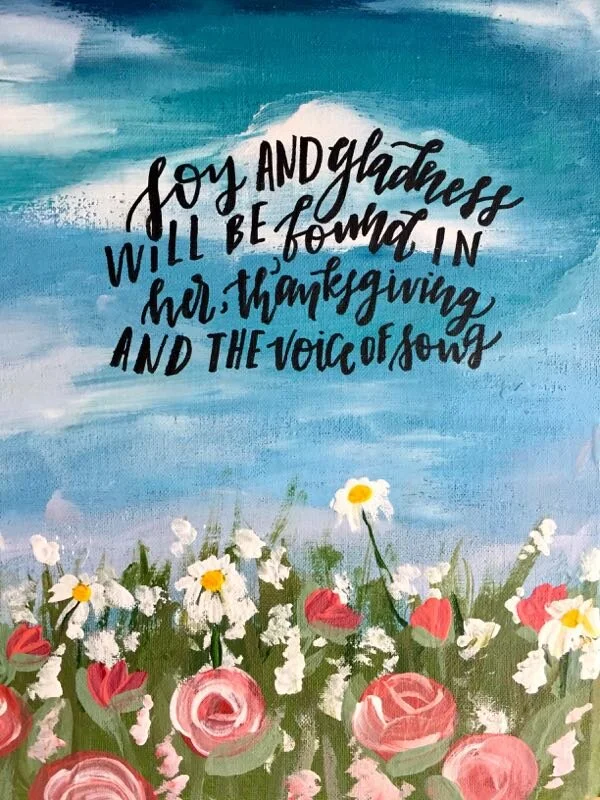 Joy AND gladness
WILL BE found IN
her, thanksgiving
AND THE voice OF song